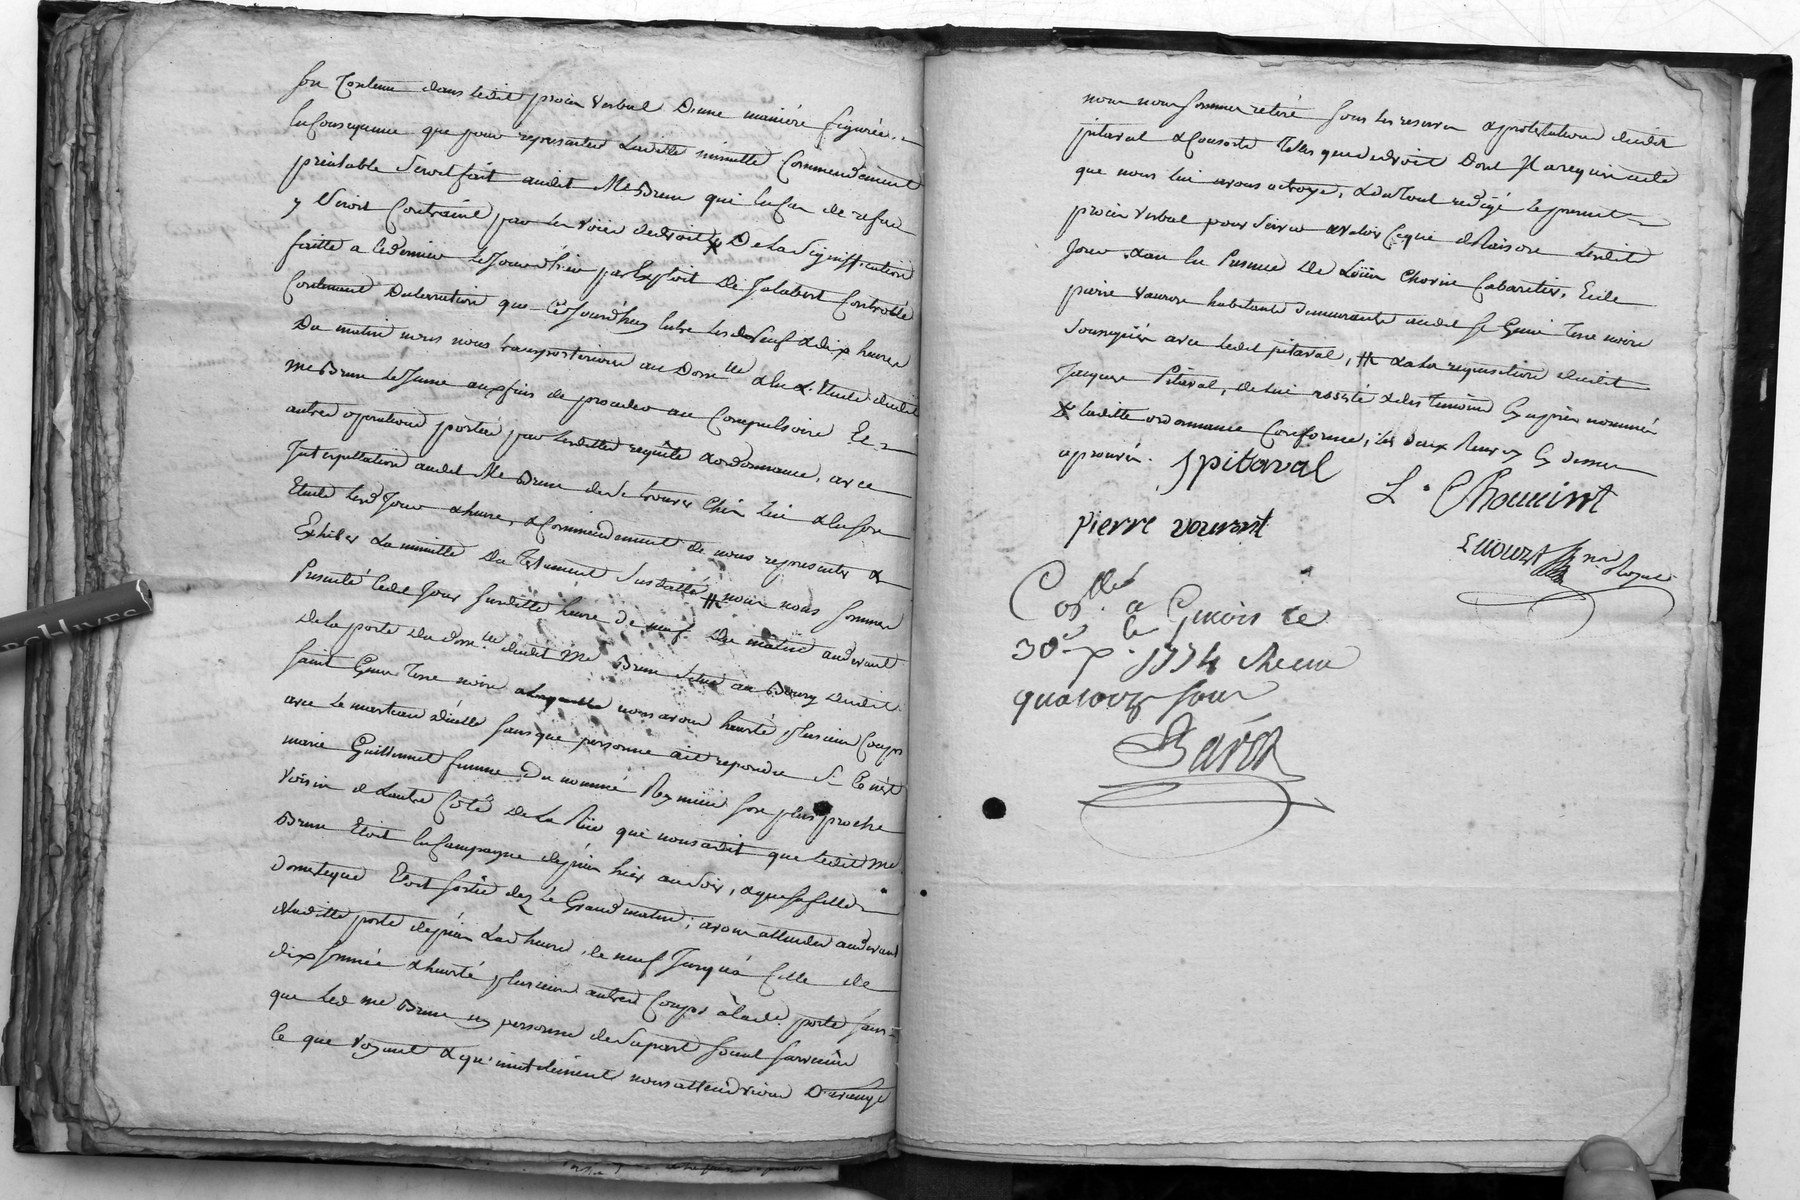 son Contenu dans ledit procès verbal D'une manière figurée.
En Consequence que pour representer Laditte minutte Commendement
préalable Seroit fait audit Me Brun qui En Cas de refus
y Seroit Contraint par les voies de droit De la Signiffication
faitte a Ce dernier Le Jour d'hier par Exploit De Jalabert Controllé
Contenant Declaration que Cejourd'huy Entre Les neuf & dix heures
Du matin nous nous transporterions au Domlle & En L'Etude dudit
me Brun Le Jeune aux fins de proceder au Compulsoire Et
autres operations portées par Lesdittes requête & ordonnance, avec
Interpellation audit Me Brun de Se trouver Chés Lui & En Son
Etude Lesd Jour & heure, & Commendement de nous representer &
Exhiber La minutte Du Testament Susdatté nous nous Sommes
Presenté Cedt Jour Susditte heure De neuf Du matin au devant
De la porte Du domlle dudit Me Brun Scitué au Bourg dudit
Saint Genis Terre noire a laquelle nous avons heurté plusieurs Coups
avec Le marteau d'icelle Sans que personne ait repondu Si Ce n'est
marie Guilliminet femme Du nommé Reymiii Son plus proche
voisin de L'autre Côté De La Rüe qui nous a dit que Ledit Me
Brun Etoit En Campagne depuis hier au Soir, & que Sa fille
domestique Etoit Sortie dez Le Grand matin; avons attendu au devant
de laditte porte depuis Lad heure de neuf Jusqu'à Celle de
dix Sonnée & heurté plusieurs autres Coups à lade porte Sans
que Led me Brun ny personne de Sa part Soient Survenus
Ce que voyant & qu'inutilement nous attendrions D'avantage
nous nous Sommes retiré Sous Les reserves & protestations dudit
pitaval & Consorts Telles que de droit Dont Il a requis acte
que nous Lui avons octroyé, & du Tout redigé Le present
procès verbal pour Servir & valoir Ce que de Raison Lesdit
Jour & an En Presence De Loüis Chovin Cabaretier, Et de
pierre vaurons habitants demeurants audit St Genis Terre noire
Soussignés avec Ledit pitaval, & a La requisition dudit
Jacques Pitaval, de Lui assisté & des Temoins Cy après nommés
laditte ordonnance Conforme, Les deux Renvoy Cy dessus
aprouvés. J pitaval
L. Chouvint
pierre vouront
Collé. a Genis Le
30e xbre 1774 Receu
quatorze Sous